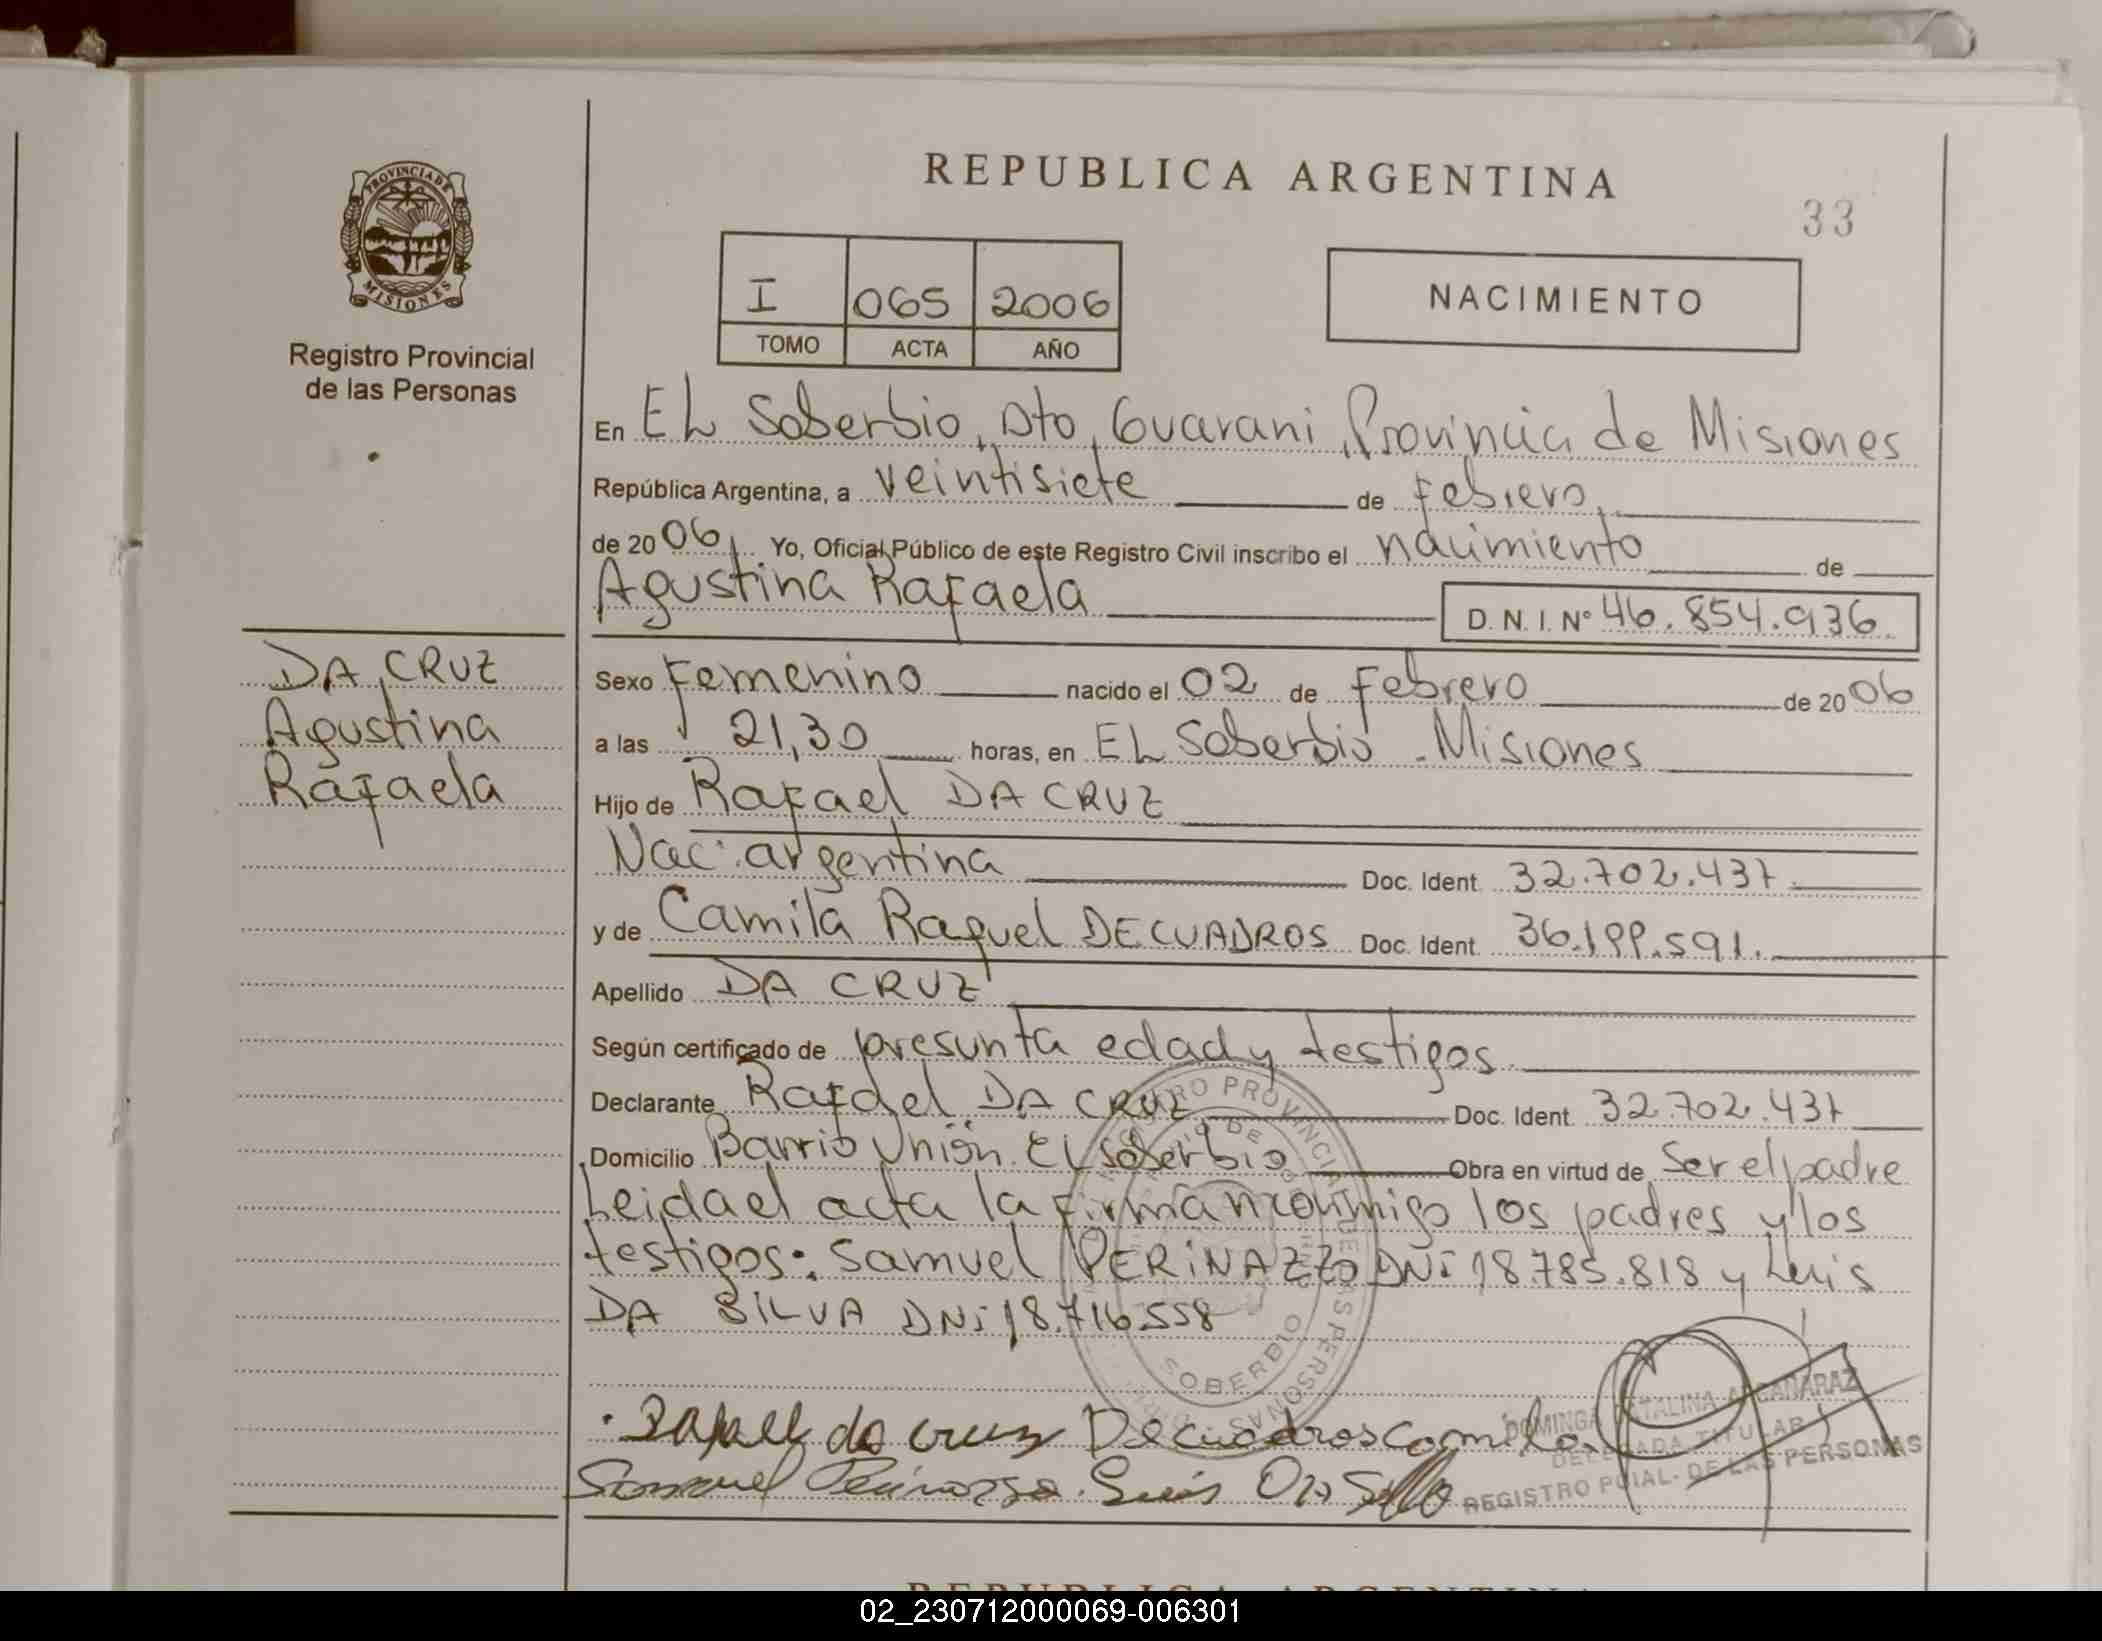 REPUBLICA ARGENTINA
33
PROVINCIA DE MISIONES
Registro Provincial
de las Personas
I 065 2006
TOMO ACTA AÑO
NACIMIENTO
En EL Soberbio, Dto, Guarani, Provincia de Misiones
República Argentina, a veintisiete de Febrero,
de 2006, Yo, Oficial Público de este Registro Civil inscribo el nacimiento de
Agustina Rafaela D.N.I. Nº 46.854.936.
DA CRUZ
Agustina
Rafaela
Sexo Femenino nacido el 02 de Febrero de 2006
a las 21,30 horas, en EL Soberbio - Misiones
Hijo de Rafael DA CRUZ
Nac. argentina Doc. Ident. 32.702.437.
y de Camila Raquel DECUADROS Doc. Ident. 36.199.591.
Apellido DA CRUZ
Según certificado de presunta edad y testigos
Declarante Rafael DA CRUZ Doc. Ident. 32.702.437
Domicilio Barrio Unión. EL Soberbio Obra en virtud de Ser el padre
Leida el acta la firman conmigo los padres y los
testigos: Samuel PERiNAZZO DNi 18.785.818 y Luis
DA SiLVA DNi 18.716.558
REGISTRO PROVINCIAL DE LAS PERSONAS
SOBERBIO
Rafael da cruz Decuadros Camila
Samuel Perinazzo. Luis Da Silva
DOMINGA CATALINA ALCAÑARAZ
DELEGADA TITULAR
REGISTRO PCIAL. DE LAS PERSONAS
REPUBLICA ARGENTINA
02_230712000069-006301